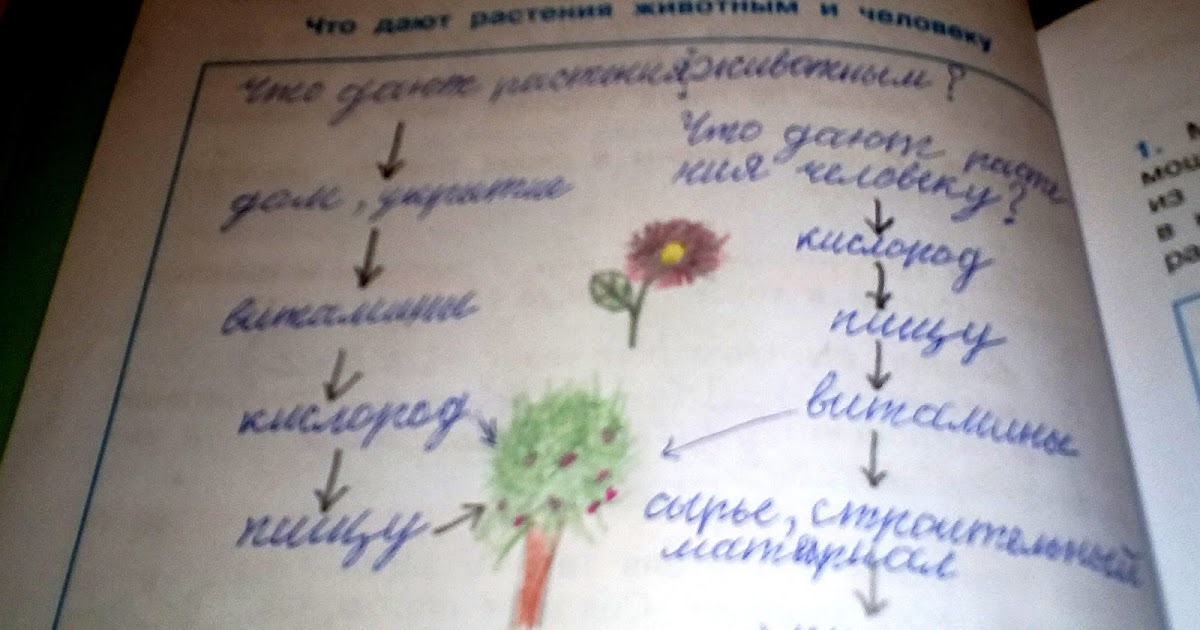 Что дают растения животным и человеку
Что дают растения животным?
дом, укрытие
витамины
кислород
пищу
Что дают расте
ния человеку?
кислород
пищу
витамины
сырье, строительный
материал
1.
мош
из
в
ра